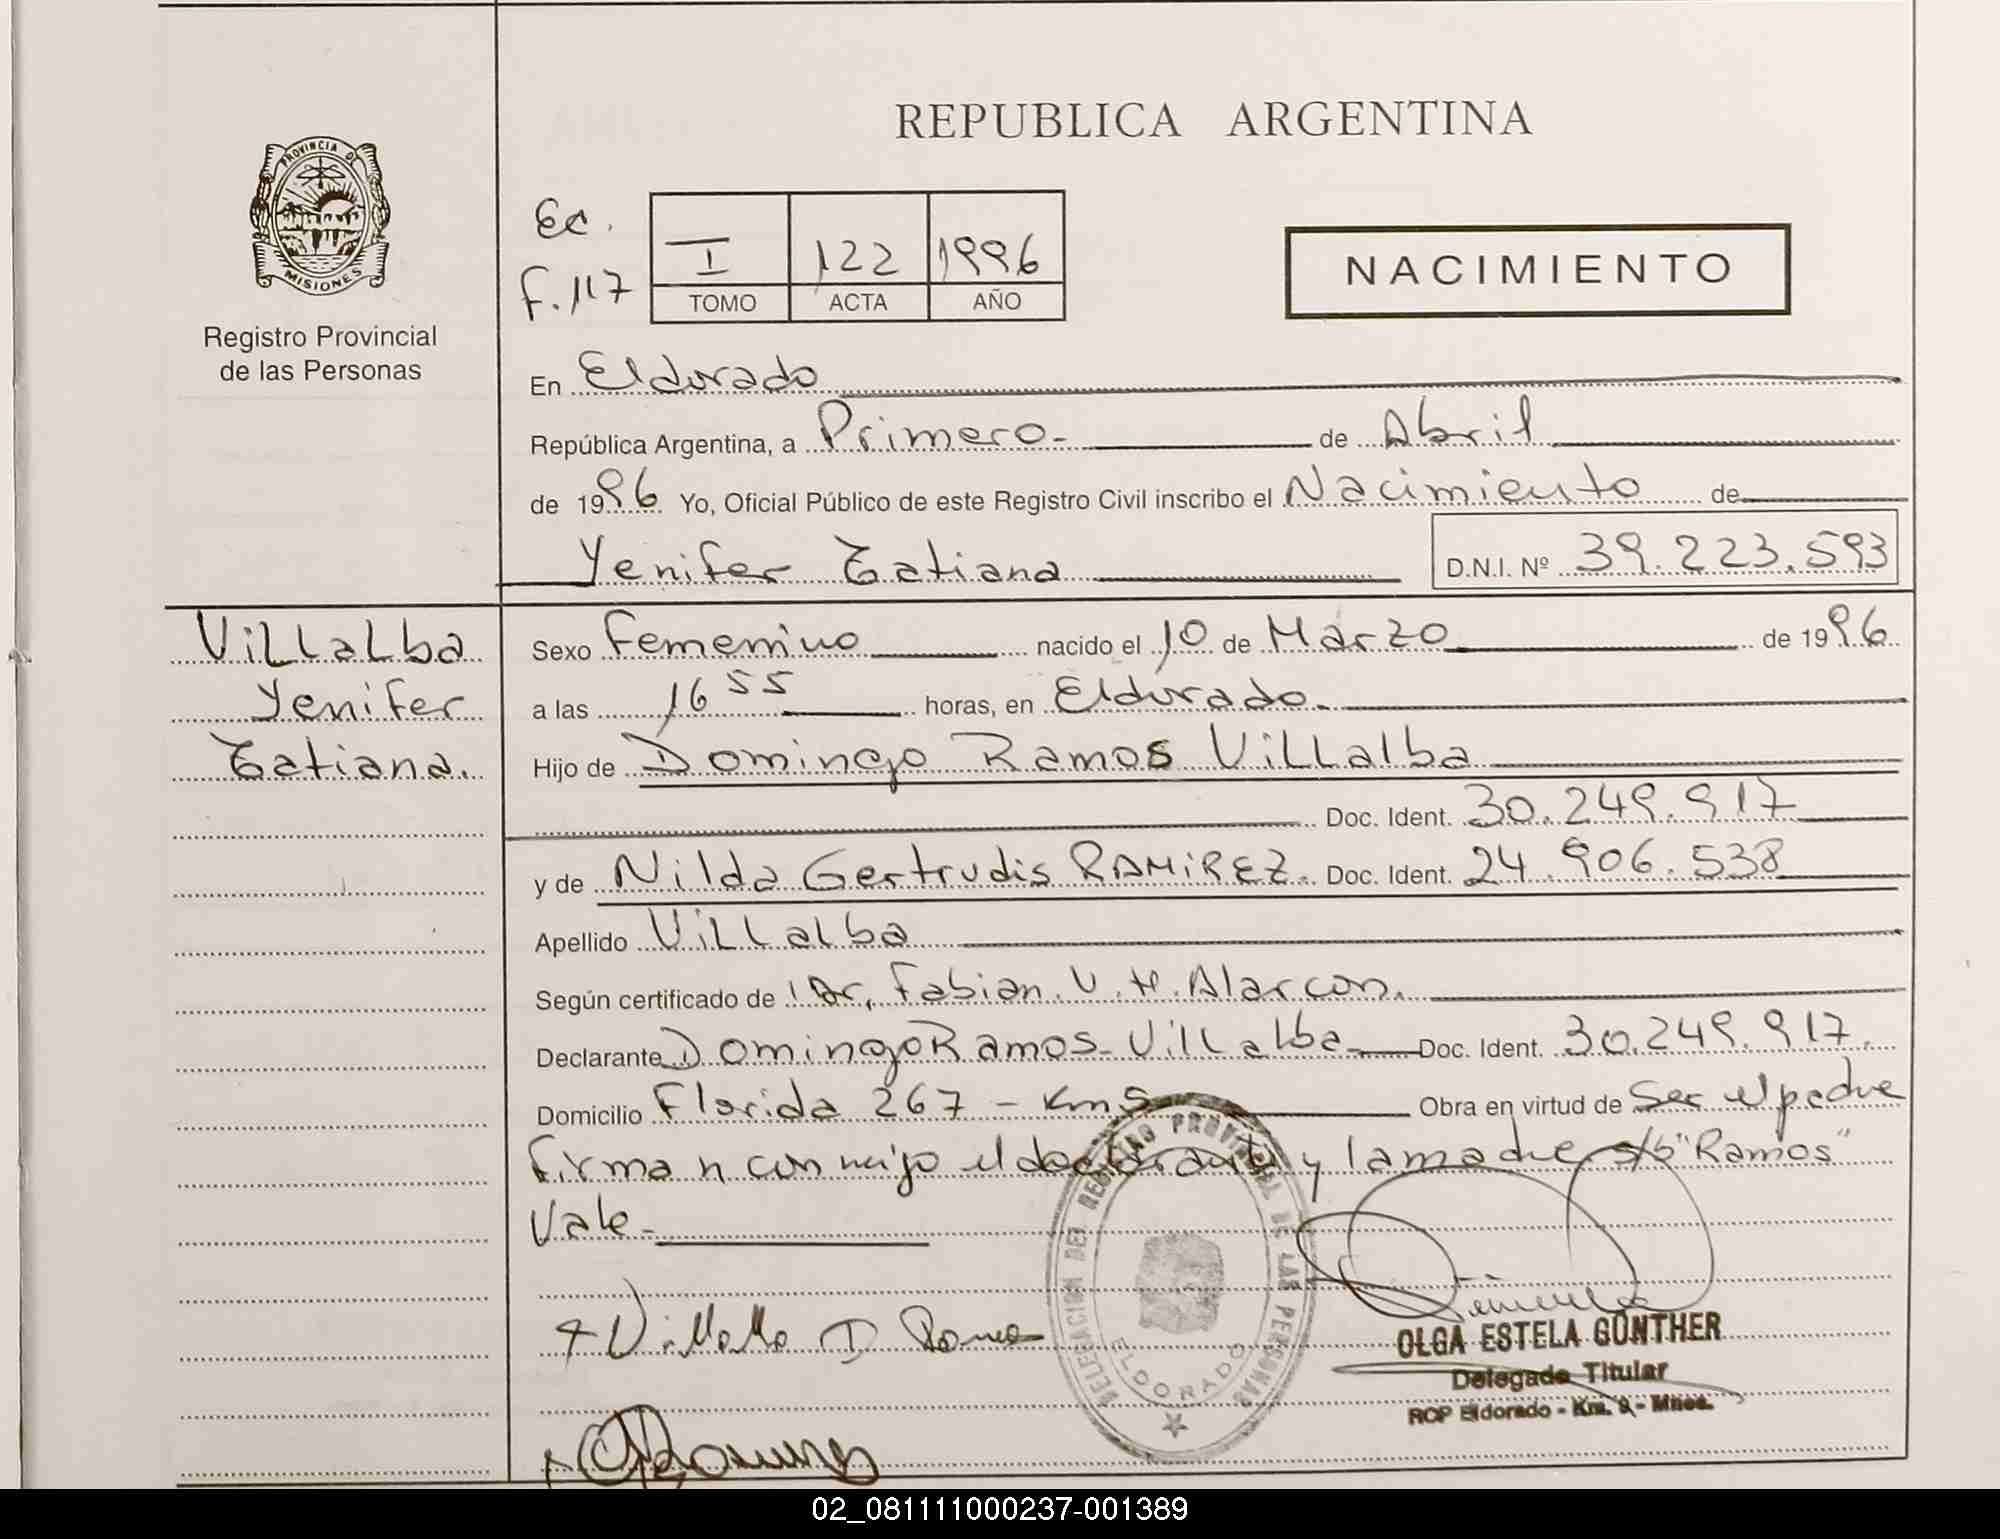 REPUBLICA ARGENTINA
PROVINCIA DE
MISIONES
Registro Provincial
de las Personas
Ec.
F. 117
I 122 1996
TOMO ACTA AÑO
NACIMIENTO
En Eldorado
República Argentina, a Primero- de Abril
de 1996 Yo, Oficial Público de este Registro Civil inscribo el Nacimiento de
Yenifer Tatiana D.N.I. Nº 39.223.593
Villalba
Yenifer
Tatiana.
Sexo Femenino nacido el 10 de Marzo de 1996
a las 16 55 horas, en Eldorado.
Hijo de Domingo Ramos Villalba
Doc. Ident. 30.249.917
y de Nilda Gertrudis RAMIREZ. Doc. Ident. 24.906.538
Apellido Villalba
Según certificado de Dr. Fabian. V. H. Alarcon.
Declarante Domingo Ramos Villalba Doc. Ident. 30.249.917.
Domicilio Florida 267 - Km 5 Obra en virtud de Ser el padre
Firman conmigo el declarante y la madre s/b "Ramos"
Vale-
DELEGACION DEL REGISTRO PROVINCIAL DE LAS PERSONAS
ELDORADO
Villalba D Ramo
OLGA ESTELA GÜNTHER
Delegada Titular
RCP Eldorado - Km. 9 - Mnes.
02_081111000237-001389